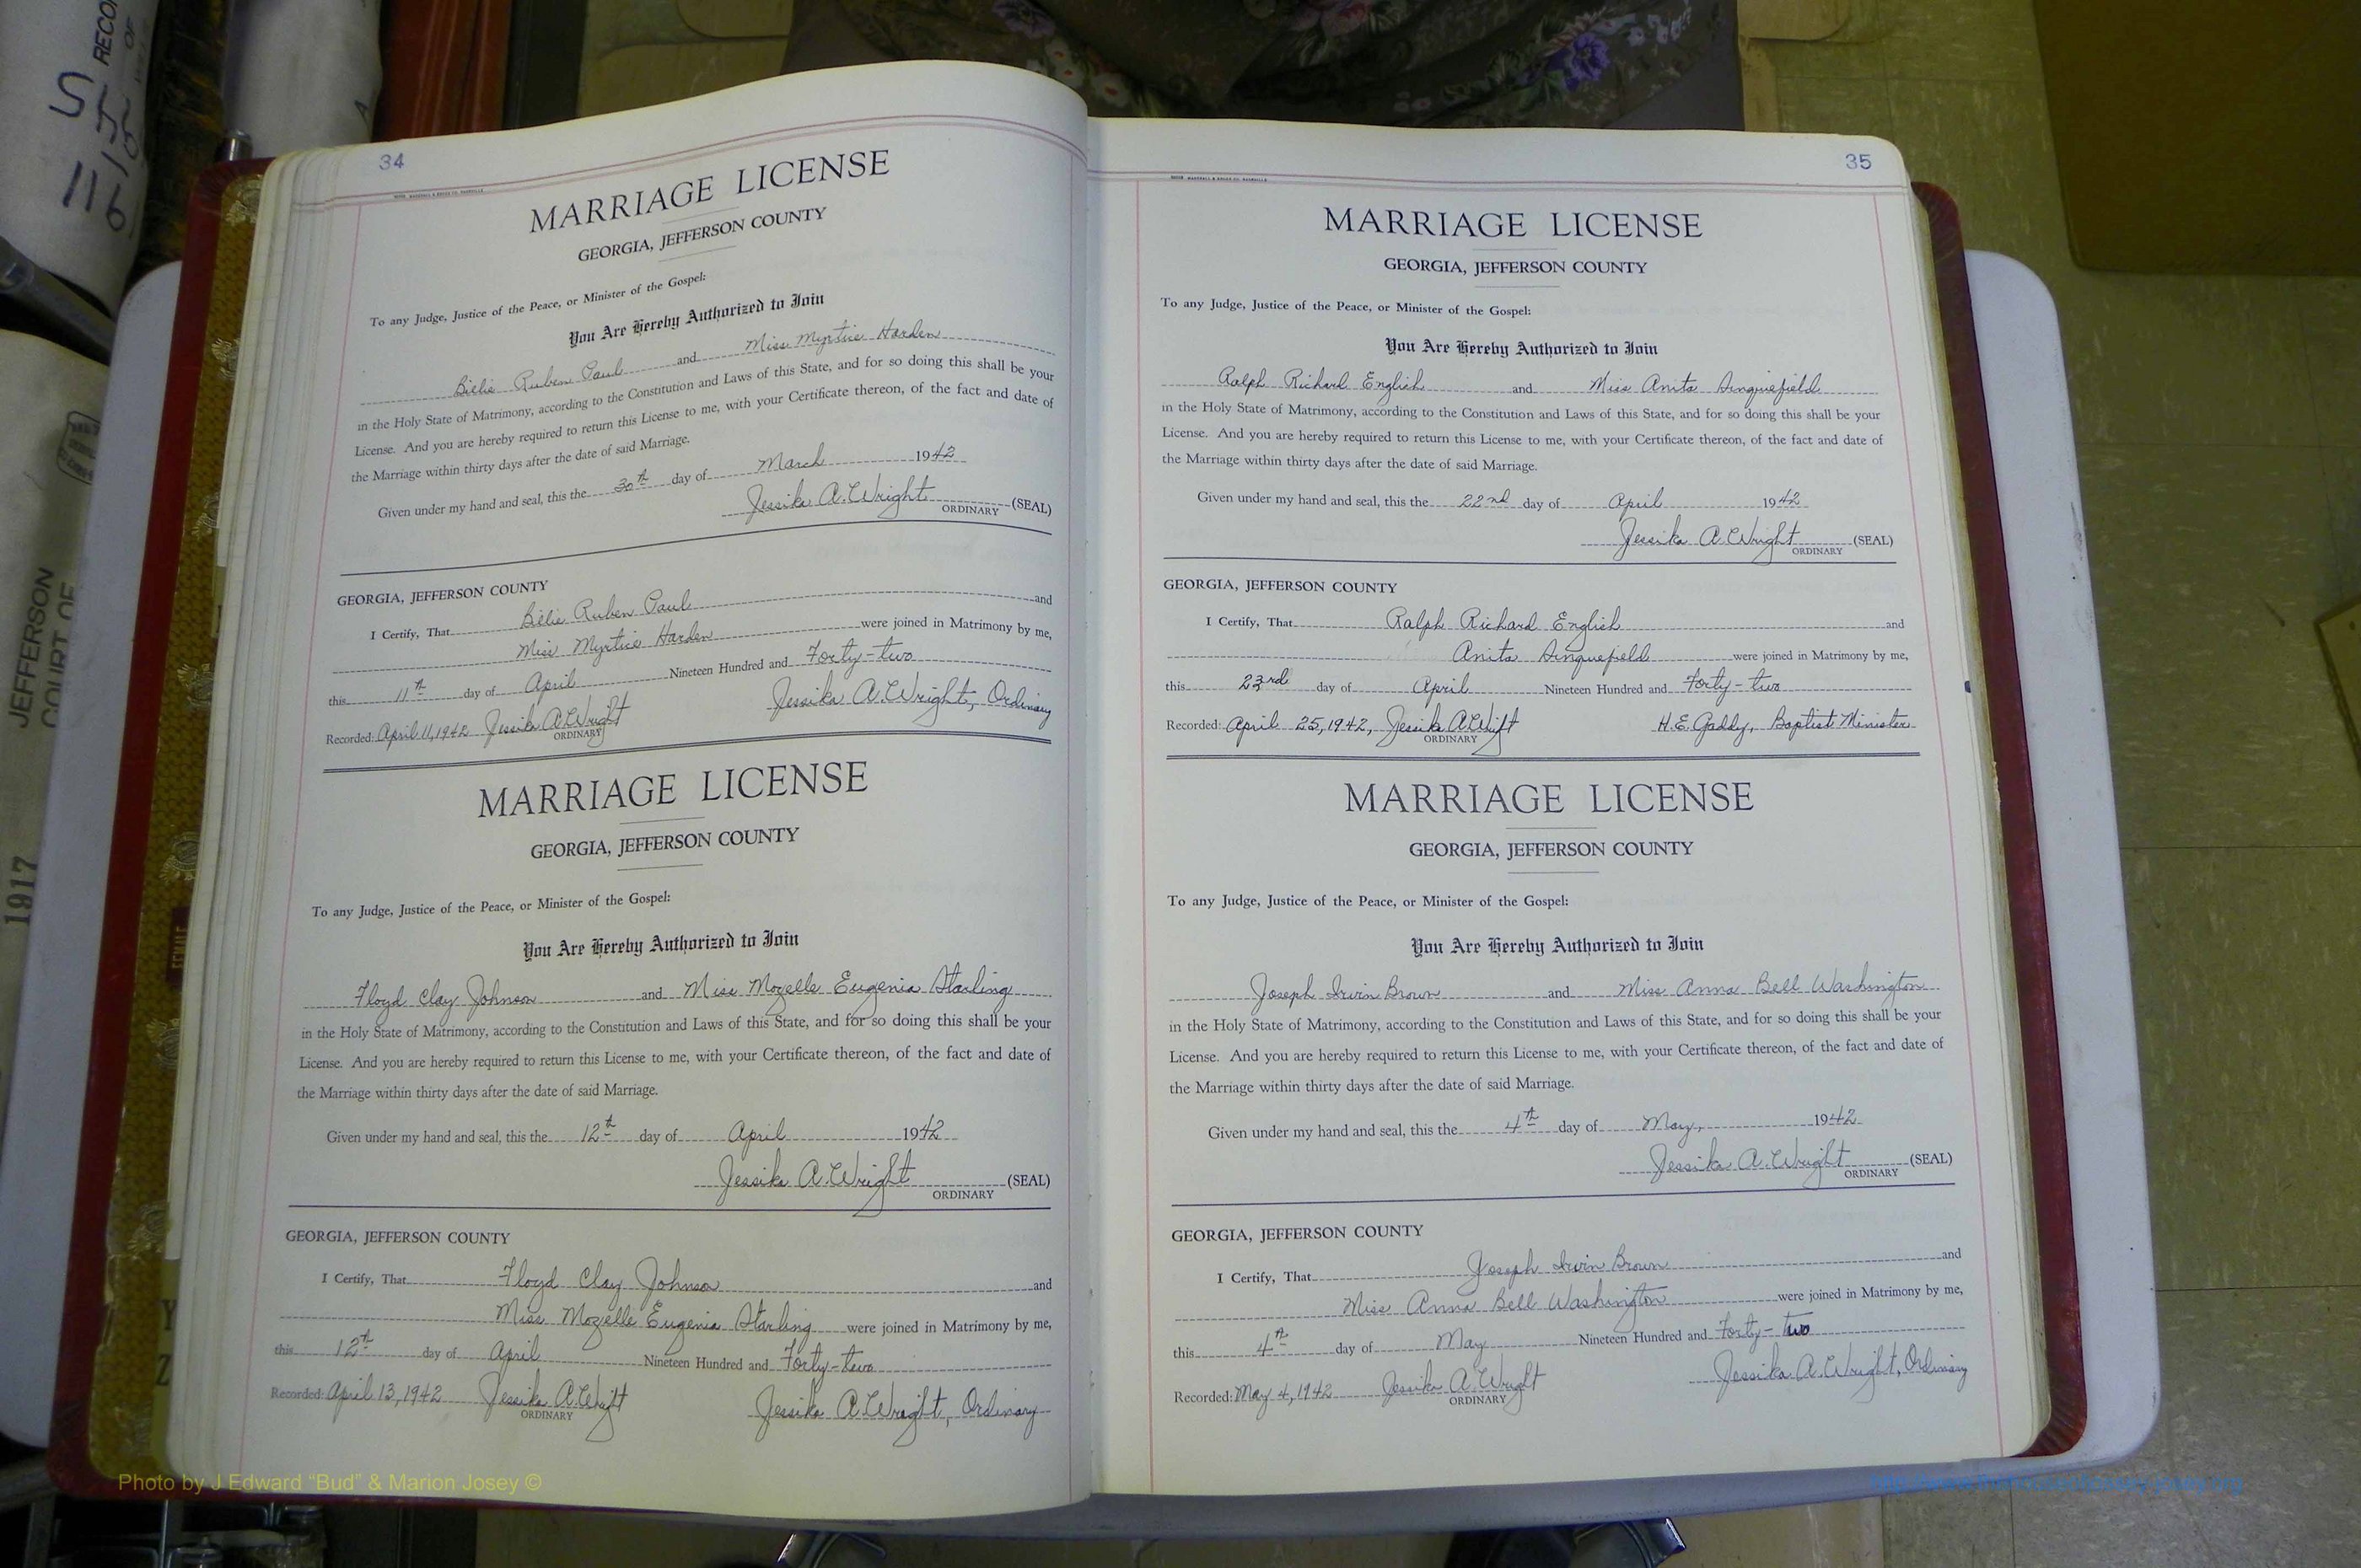 34
MARRIAGE LICENSE
GEORGIA, JEFFERSON COUNTY
To any Judge, Justice of the Peace, or Minister of the Gospel:
You Are Hereby Authorized to Join
Billie Ruben Paul and Miss Myrtice Harden
in the Holy State of Matrimony, according to the Constitution and Laws of this State, and for so doing this shall be your
License. And you are hereby required to return this License to me, with your Certificate thereon, of the fact and date of
the Marriage within thirty days after the date of said Marriage.
Given under my hand and seal, this the 30th day of March 1942
Jessika A. Wright (SEAL)
ORDINARY
GEORGIA, JEFFERSON COUNTY
I Certify, That Billie Ruben Paul and
Miss Myrtice Harden were joined in Matrimony by me,
this 11th day of April Nineteen Hundred and Forty-two
Recorded: April 11, 1942 Jessika A. Wright Jessika A. Wright, Ordinary
ORDINARY
MARRIAGE LICENSE
GEORGIA, JEFFERSON COUNTY
To any Judge, Justice of the Peace, or Minister of the Gospel:
You Are Hereby Authorized to Join
Floyd Clay Johnson and Miss Mozelle Eugenia Starling
in the Holy State of Matrimony, according to the Constitution and Laws of this State, and for so doing this shall be your
License. And you are hereby required to return this License to me, with your Certificate thereon, of the fact and date of
the Marriage within thirty days after the date of said Marriage.
Given under my hand and seal, this the 12th day of April 1942
Jessika A. Wright (SEAL)
ORDINARY
GEORGIA, JEFFERSON COUNTY
I Certify, That Floyd Clay Johnson and
Miss Mozelle Eugenia Starling were joined in Matrimony by me,
this 12th day of April Nineteen Hundred and Forty-two
Recorded: April 13, 1942 Jessika A. Wright Jessika A. Wright, Ordinary
ORDINARY
35
MARRIAGE LICENSE
GEORGIA, JEFFERSON COUNTY
To any Judge, Justice of the Peace, or Minister of the Gospel:
You Are Hereby Authorized to Join
Ralph Richard English and Miss Anita Sinquefield
in the Holy State of Matrimony, according to the Constitution and Laws of this State, and for so doing this shall be your
License. And you are hereby required to return this License to me, with your Certificate thereon, of the fact and date of
the Marriage within thirty days after the date of said Marriage.
Given under my hand and seal, this the 22nd day of April 1942
Jessika A. Wright (SEAL)
ORDINARY
GEORGIA, JEFFERSON COUNTY
I Certify, That Ralph Richard English and
Anita Sinquefield were joined in Matrimony by me,
this 23rd day of April Nineteen Hundred and Forty-two
Recorded: April 25, 1942, Jessika A. Wright H. E. Gaddy, Baptist Minister
ORDINARY
MARRIAGE LICENSE
GEORGIA, JEFFERSON COUNTY
To any Judge, Justice of the Peace, or Minister of the Gospel:
You Are Hereby Authorized to Join
Joseph Irvin Brown and Miss Anna Bell Washington
in the Holy State of Matrimony, according to the Constitution and Laws of this State, and for so doing this shall be your
License. And you are hereby required to return this License to me, with your Certificate thereon, of the fact and date of
the Marriage within thirty days after the date of said Marriage.
Given under my hand and seal, this the 4th day of May, 1942
Jessika A. Wright (SEAL)
ORDINARY
GEORGIA, JEFFERSON COUNTY
I Certify, That Joseph Irvin Brown and
Miss Anna Bell Washington were joined in Matrimony by me,
this 4th day of May Nineteen Hundred and Forty-two
Recorded: May 4, 1942 Jessika A. Wright Jessika A. Wright, Ordinary
ORDINARY
JEFFERSON
COURT OF
1917
FEMALE
Photo by J Edward “Bud” & Marion Josey ©